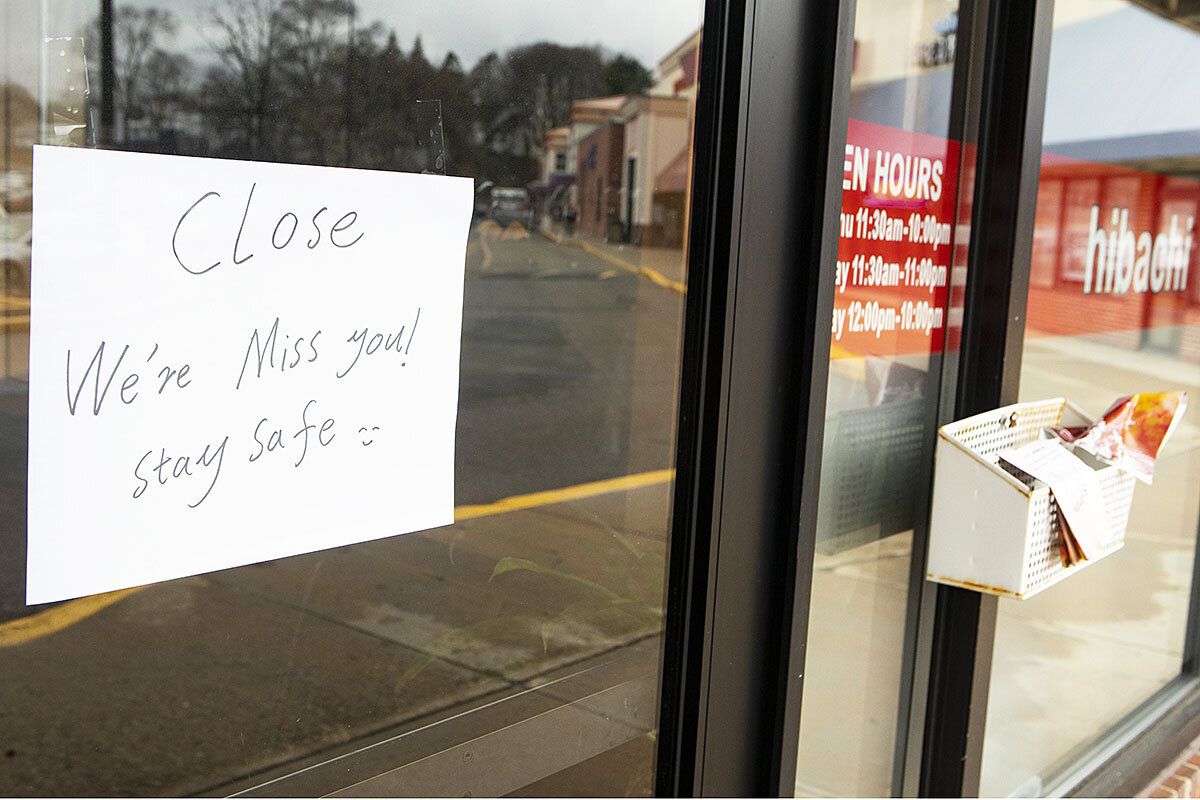 Close
We're Miss you!
stay safe
EN HOURS
hu 11:30am-10:00pm
ay 11:30am-11:00pm
ay 12:00pm-10:00pm
hibachi